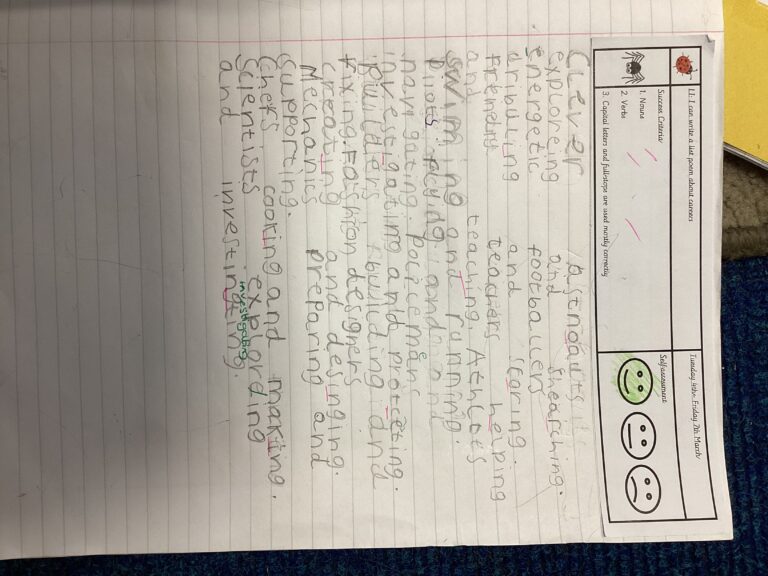 LI: I can write a list poem about careers Tuesday 4th- Friday 7th March
Success Criteria Selfassessment
1. Nouns
2. Verbs
3. Capital letters and fullstops are used mostly correctly
Clever
exploreing and shearching.
energetic footballers
dribuling and scoring.
teachers helping
and teaching. Athleots
swiming and running.
Piots plying and
navigating. Policemans
investigating and protceting.
Builders building and
fixing. Fashion designers
creating and desinging.
Mechanics preparing and
Supporting.
Chefs cooking and making.
Scientists explording
investigating
and